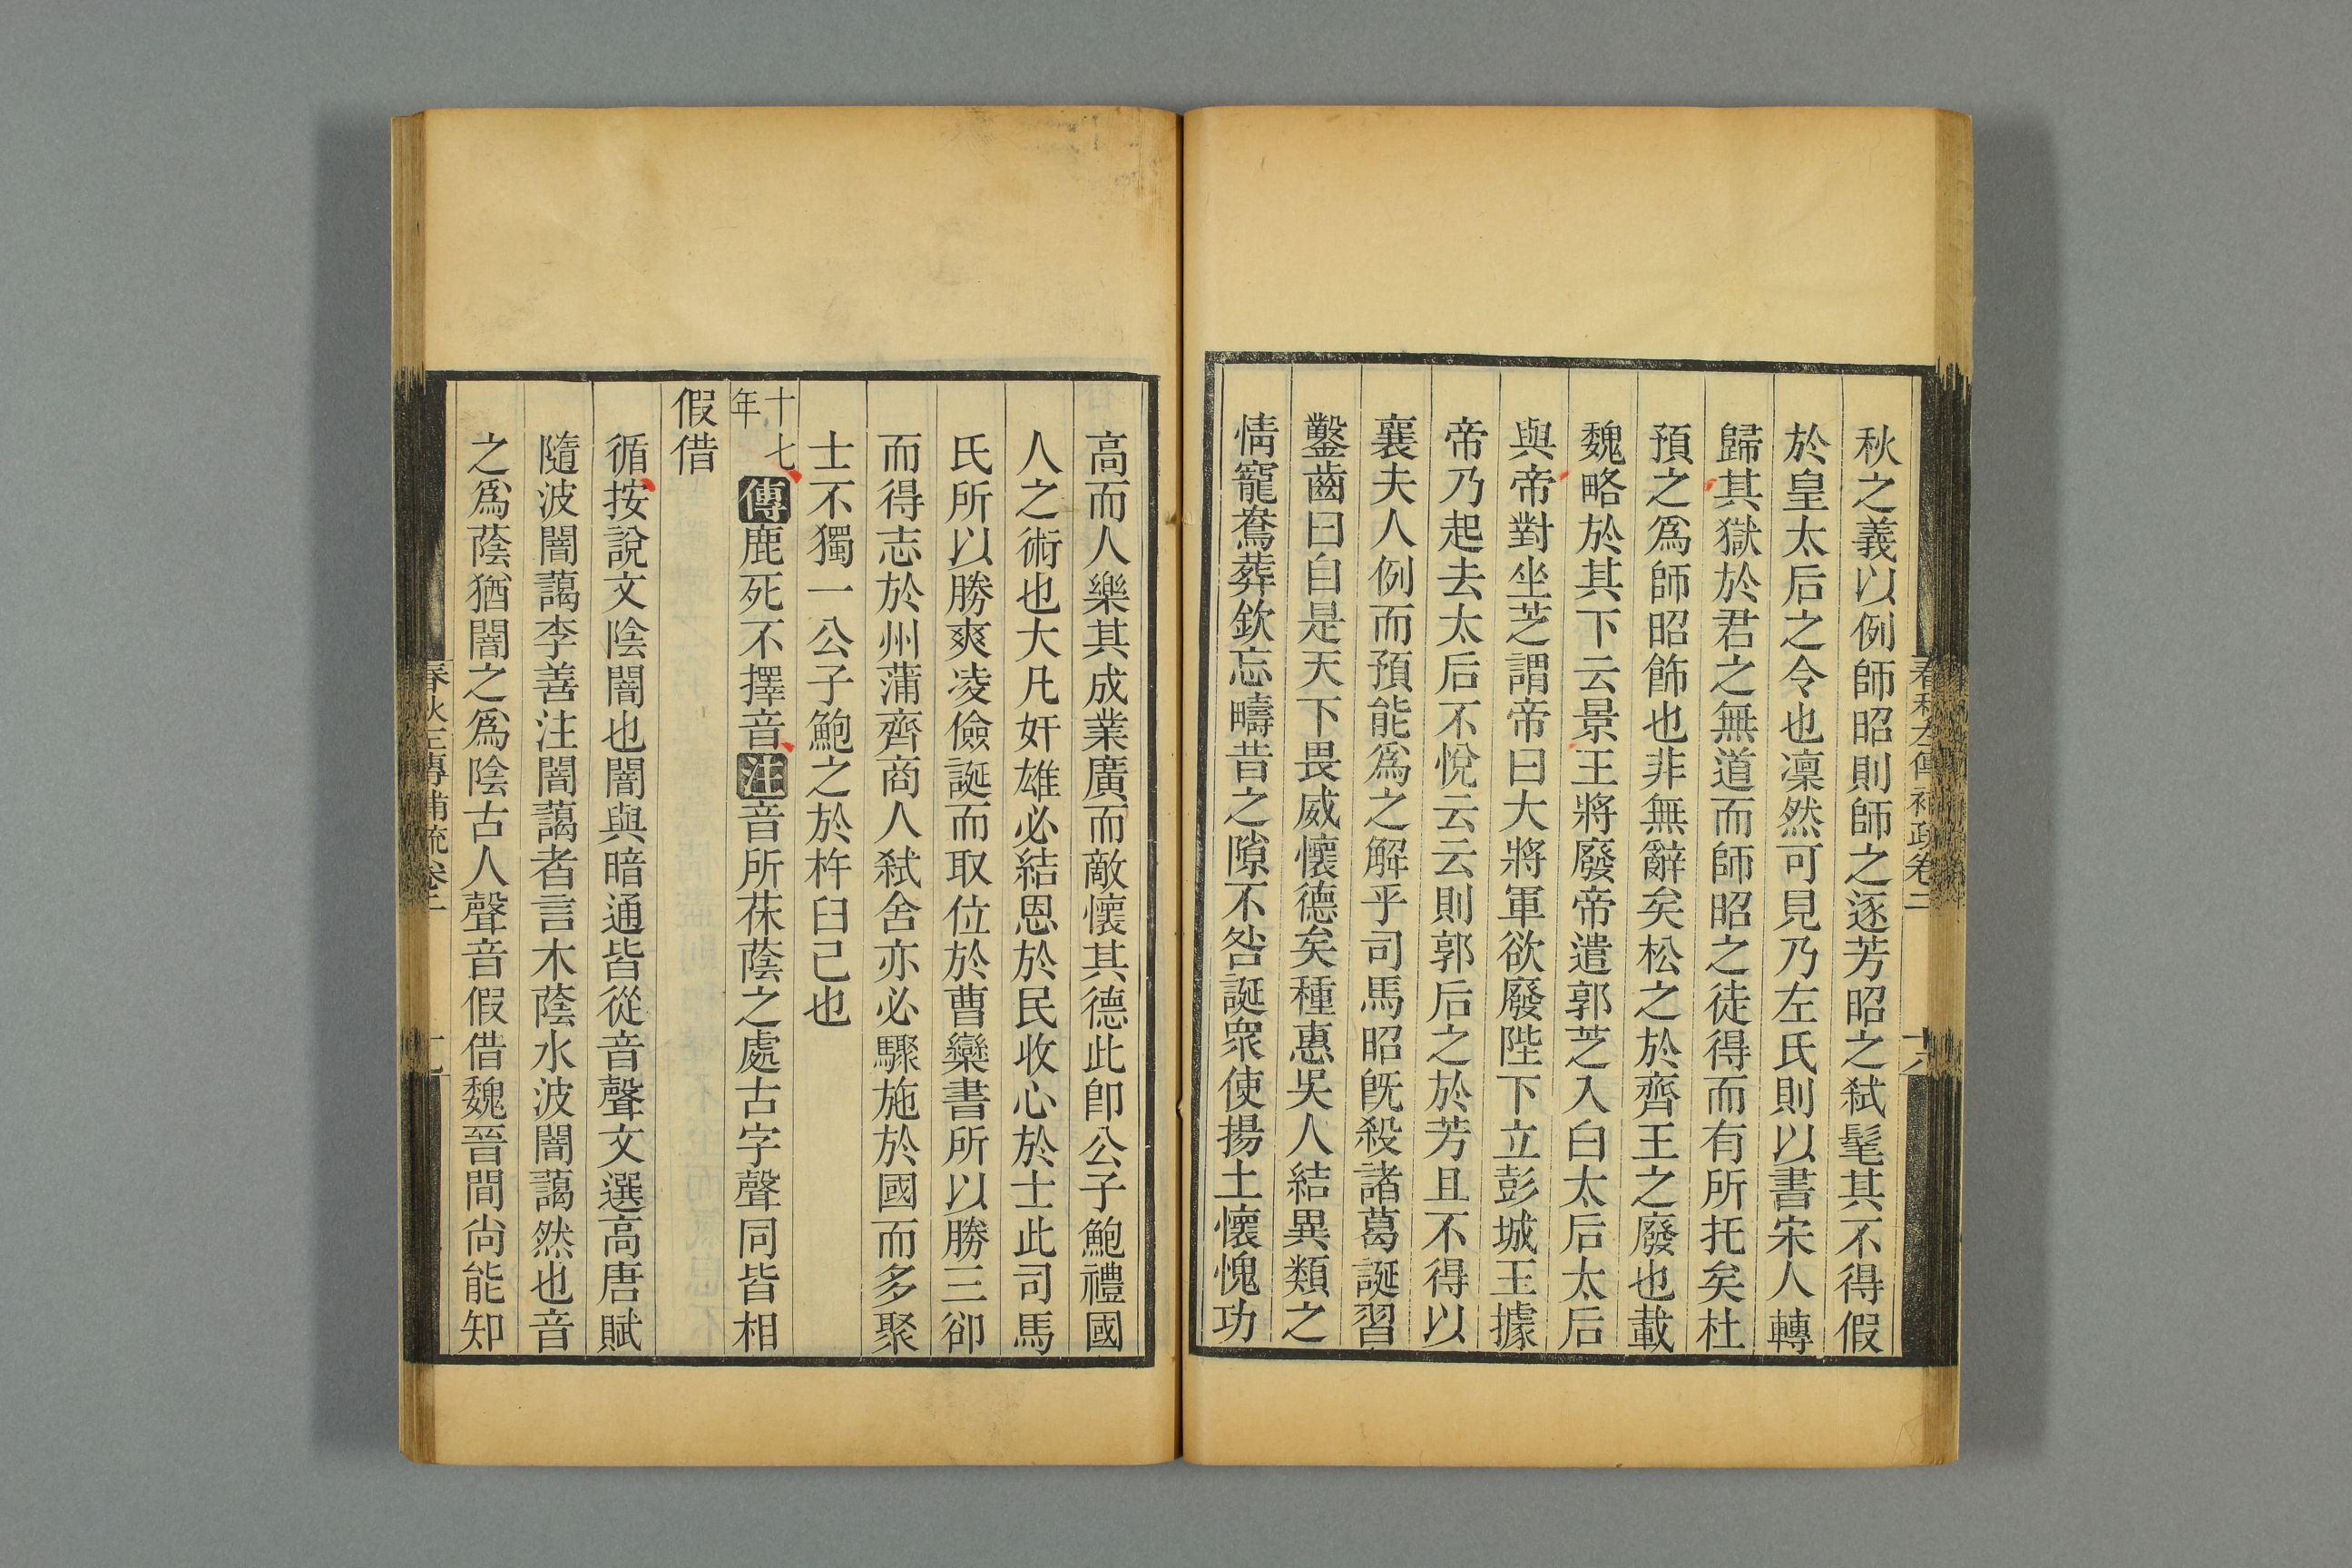 秋之義以例師昭則師之逐芳昭之弑髦其不得假
於皇太后之令也凜然可見乃左氏則以書宋人轉
歸其獄於君之無道而師昭之徒得而有所托矣杜
預之為師昭飾也非無辭矣松之於齊王之廢也載
魏略於其下云景王將廢帝遣郭芝入白太后太后
與帝對坐芝謂帝曰大將軍欲廢陛下立彭城王據
帝乃起去太后不悅云云則郭后之於芳且不得以
襄夫人例而預能為之解乎司馬昭旣殺諸葛誕習
鑿齒曰自是天下畏威懷德矣種惠吳人結異類之
情寵鴦葬欽忘疇昔之隙不咎誕衆使揚土懷愧功
春秋左傳補疏卷二
十八
高而人樂其成業廣而敵懷其德此卽公子鮑禮國
人之術也大凡奸雄必結恩於民收心於士此司馬
氏所以勝爽凌儉誕而取位於曹欒書所以勝三郤
而得志於州蒲齊商人弑舍亦必驟施於國而多聚
士不獨一公子鮑之於杵臼己也
十七年傳鹿死不擇音注音所茠蔭之處古字聲同皆相
假借
循按說文陰闇也闇與暗通皆從音聲文選高唐賦
隨波闇藹李善注闇藹者言木蔭水波闇藹然也音
之為蔭猶闇之為陰古人聲音假借魏晉間尙能知
春秋左傳補疏卷二